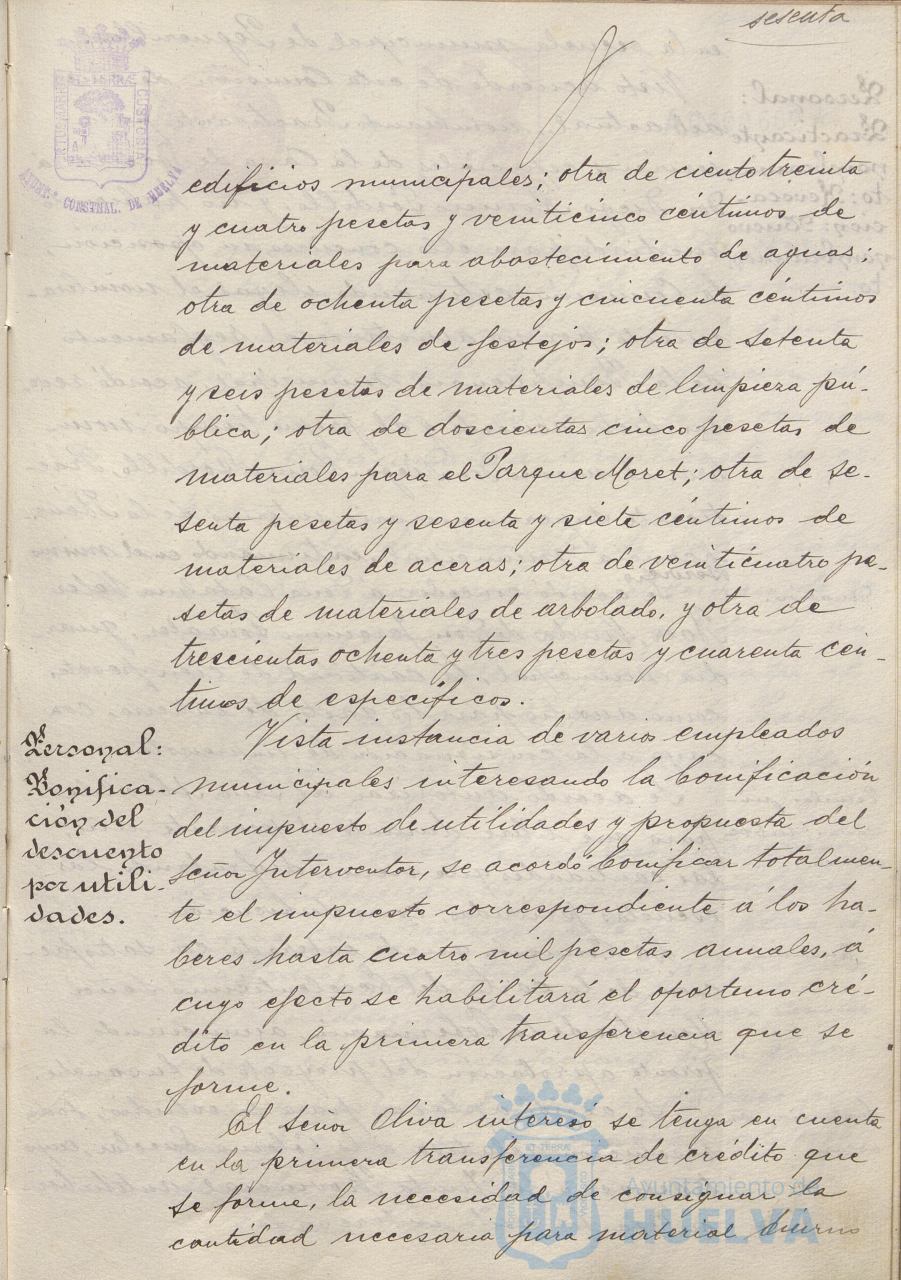 sesenta
edificios municipales; otra de ciento treinta
y cuatro pesetas y veinticinco céntimos de
materiales para abastecimiento de aguas;
otra de ochenta pesetas y cincuenta céntimos
de materiales de festejos; otra de setenta
y seis pesetas de materiales de limpieza pú-
blica; otra de doscientas cinco pesetas de
materiales para el Parque Moret; otra de se-
senta pesetas y sesenta y siete céntimos de
materiales de aceras; otra de veinticuatro pe-
setas de materiales de arbolado, y otra de
trescientas ochenta y tres pesetas y cuarenta cén-
timos de específicos.
Personal:
Bonifica-
ción del
descuento
por utili-
dades.
Vista instancia de varios empleados
municipales interesando la bonificación
del impuesto de utilidades y propuesta del
señor Interventor, se acordó bonificar totalmen-
te el impuesto correspondiente á los ha-
beres hasta cuatro mil pesetas anuales, á
cuyo efecto se habilitará el oportuno cré-
dito en la primera transferencia que se
forme.
El señor Oliva interesó se tenga en cuenta
en la primera transferencia de crédito que
se forme, la necesidad de consignar la
cantidad necesaria para material diurno
AYUNT.º CONSTNAL. DE HUELVA
Ayuntamiento de
HUELVA